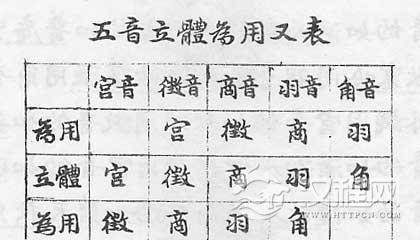 五音立體為用又表
宮音 徵音 商音 羽音 角音
為用 宮 徵 商 羽
立體 宮 徵 商 羽 角
為用 徵 商 羽 角
文程网
HTTPCN.COM